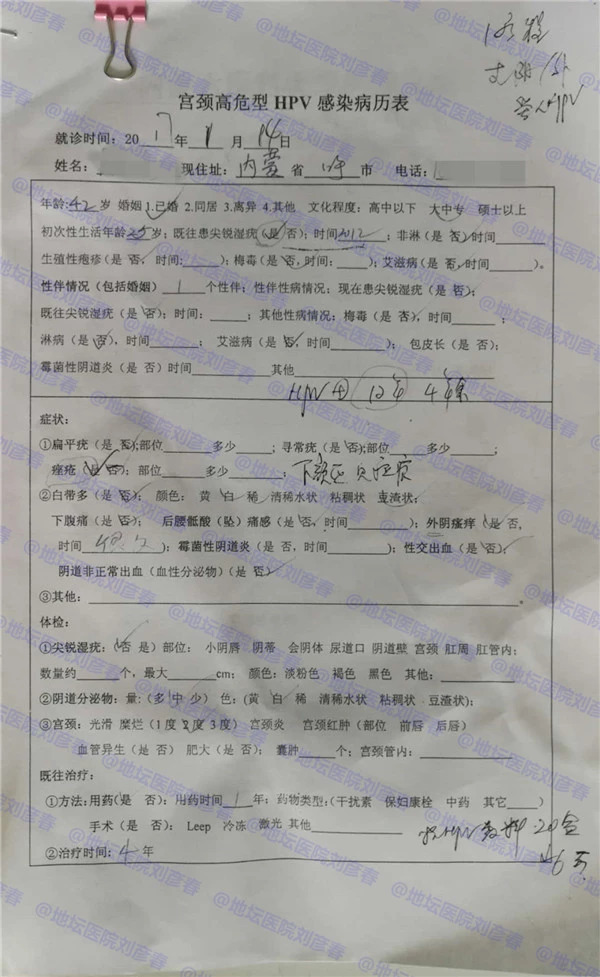 @地坛医院刘彦春
宫颈高危型 HPV 感染病历表
就诊时间：2017年1月14日
姓名： 现住址：内蒙省 市 电话：
年龄:42岁 婚姻 1.已婚 2.同居 3.离异 4.其他 文化程度：高中以下 大中专 硕士以上
初次性生活年龄25岁；既往患尖锐湿疣（是 否）；时间2012；非淋（是 否）时间
生殖性疱疹（是 否，时间：）；梅毒（是 否，时间：）；艾滋病（是 否，时间）。
性伴情况（包括婚姻）1个性伴；性伴性病情况：现在患尖锐湿疣（是 否）；
既往尖锐湿疣（是 否）；时间：；其他性病情况：梅毒（是 否），时间；
淋病（是 否），时间；艾滋病（是 否，时间）；包皮长（是 否）；
霉菌性阴道炎（是 否）时间 其他
HPV 12年 4年余
症状：
①扁平疣（是 否）；部位 多少；寻常疣（是 否）；部位 多少；
痤疮（是 否）；部位 多少；
②白带多（是 否）；颜色：黄 白 稀 清稀水状 粘稠状 豆渣状；
下腹痛（是 否）；后腰骶酸（坠）痛感（是 否，时间）；外阴瘙痒（是 否，
时间）；霉菌性阴道炎（是 否，时间）；性交出血（是 否），
阴道非正常出血（血性分泌物）（是 否）
③其他：。
体检：
①尖锐湿疣：（否 是）部位：小阴唇 阴蒂 会阴体 尿道口 阴道壁 宫颈 肛周 肛管内；
数量约 个，最大 cm；颜色：淡粉色 褐色 黑色 其他：
②阴道分泌物：量：（多 中 少） 色：（黄 白 稀 清稀水状 粘稠状 豆渣状）；
③宫颈：光滑 糜烂（1度 2度 3度） 宫颈炎 宫颈红肿（部位 前唇 后唇）
血管异生（是 否） 肥大（是 否）； 囊肿 个；宫颈管内：
既往治疗：
①方法：用药（是 否）；用药时间1年；药物类型：（干扰素 保妇康栓 中药 其它）
手术（是 否）： Leep 冷冻 激光 其他
抗HPV敷料 20盒
②治疗时间：4年